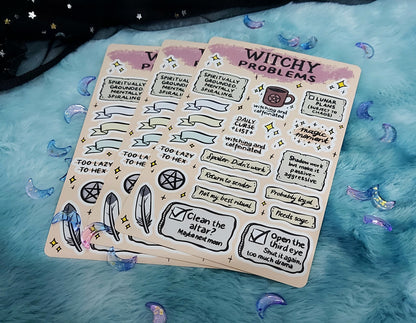 WITCHY
PROBLEMS
SPIRITUALLY
GROUNDED.
MENTALLY
SPIRALING.
witching and
caffeinated
LUNAR
PLANS
(SUBJECT TO
CHAOS)
DAILY
CURSE
LIST
magic
margint
witching and
caffeinated
TOO LAZY
TO HEX
Spoiler: Didn't work
Shadow work
but make it
passive-
aggressive
Return to sender
Probably legal
Not my best ritual
Needs sage
Clean the
altar?
Maybe next moon
Open the
third eye
Shut it again,
too much drama
SPIRITUALLY
GROUNDED.
MENTALLY
SPIRALING.
TOO LAZY
TO HEX
SPIRITUALLY
GROUNDED.
MENTALLY
SPIRALING.
TOO LAZY
TO HEX